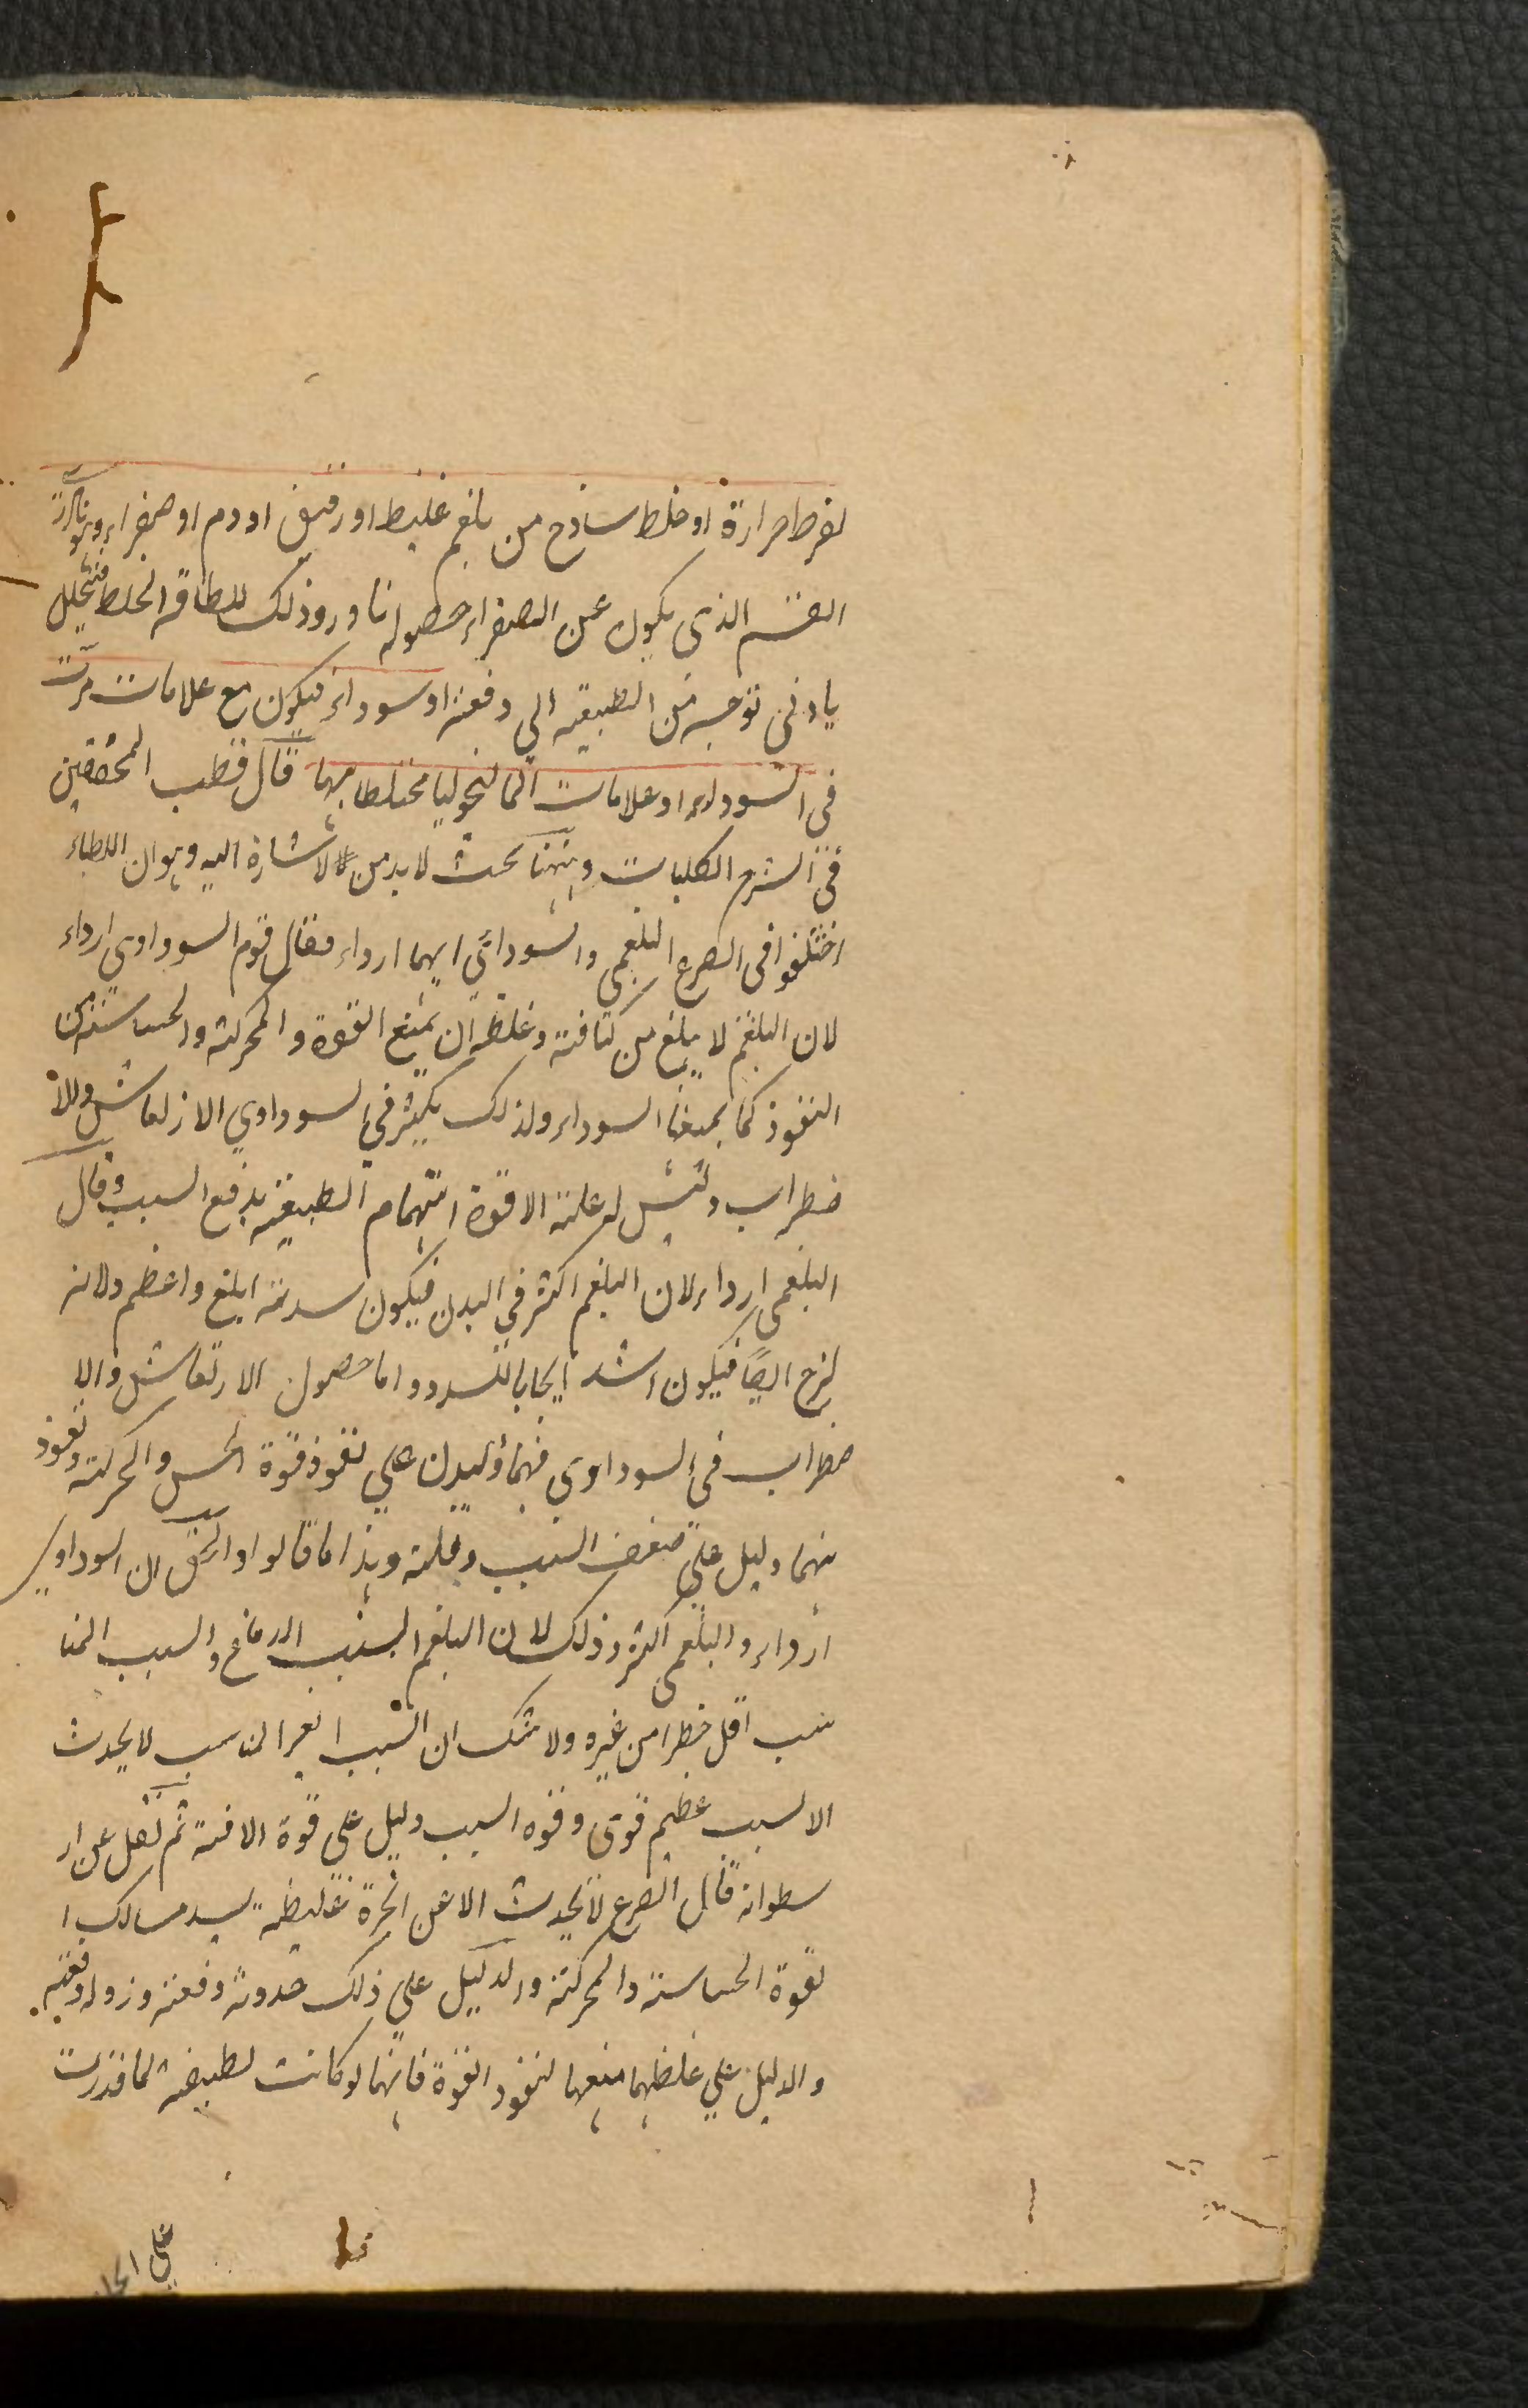 لفرط حرارة او خلط ساذج من بلغم غليظ او رقيق او دم او صفراء وهو نادر
القسم الذى يكون عن الصفراء حصوله نادر وذلك للطافة الخلط فيتحلل
بادنى توجه من الطبيعة الي دفعة او سوداء فيكون مع علامات مرّت
فى السوداء او علامات المالنخوليا مختلطا بها قال قطب المحققين
فى الشرح الكليات وههنا بحث لا بد من الاشارة اليه وهو ان الاطباء
اختلفوا فى الصرع البلغمى والسودائي ايهما ارداء فقال قوم السوداوي ارداء
لان البلغم لا يبلغ من كثافته وغلظه ان يمنع القوة والمحركة والحساسة من
النفوذ كما يمنعها السوداء ولذلك يكثر في السوداوي الارتعاش والا
ضطراب وليس له علة الا قوة اهتمام الطبيعة بدفع السبب وقال
البلغمى ارداء لان البلغم اكثر في البدن فيكون سدته ابلغ واعظم ولانه
لزج ايضًا فيكون اشد ايجابا للسدد واما حصول الارتعاش والا
ضطراب فى السوداوى فهما يدلان علي نفوذ قوة الحس والحركة ونفوذ
هما دليل علي ضعف السبب وقلته وهذا ما قالوا والحق ان السوداوي
ارداء والبلغمى اكثر وذلك لان البلغم انسب الدماغ والسبب المنا
سب اقل خطرا من غيره ولا شك ان السبب الغير المناسب لا يحدث
الا لسبب عظيم قوى وقوه السبب دليل على قوة الافة ثم نقل عن ار
سطو انه قال الصرع لا يحدث الا عن ابخرة غليظة يسد مسالك ا
لقوة الحساسة والمحركة والدليل علي ذلك حدوثه دفعة وزواله دفعة
والدليل علي غلظهما منعها لنفوذ القوة فانها لو كانت لطيفة لما قدرت